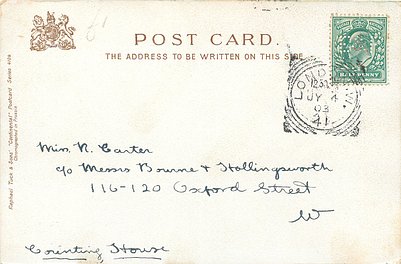 POST CARD.
THE ADDRESS TO BE WRITTEN ON THIS SIDE
HALFPENNY
LONDON
JY 4
03
41
Raphael Tuck & Sons' "Continental" Postcard Series 4109
Chromographed in France
Miss N. Carter
c/o Messrs Bourne & Hollingsworth
116-120 Oxford Street
W
Counting House